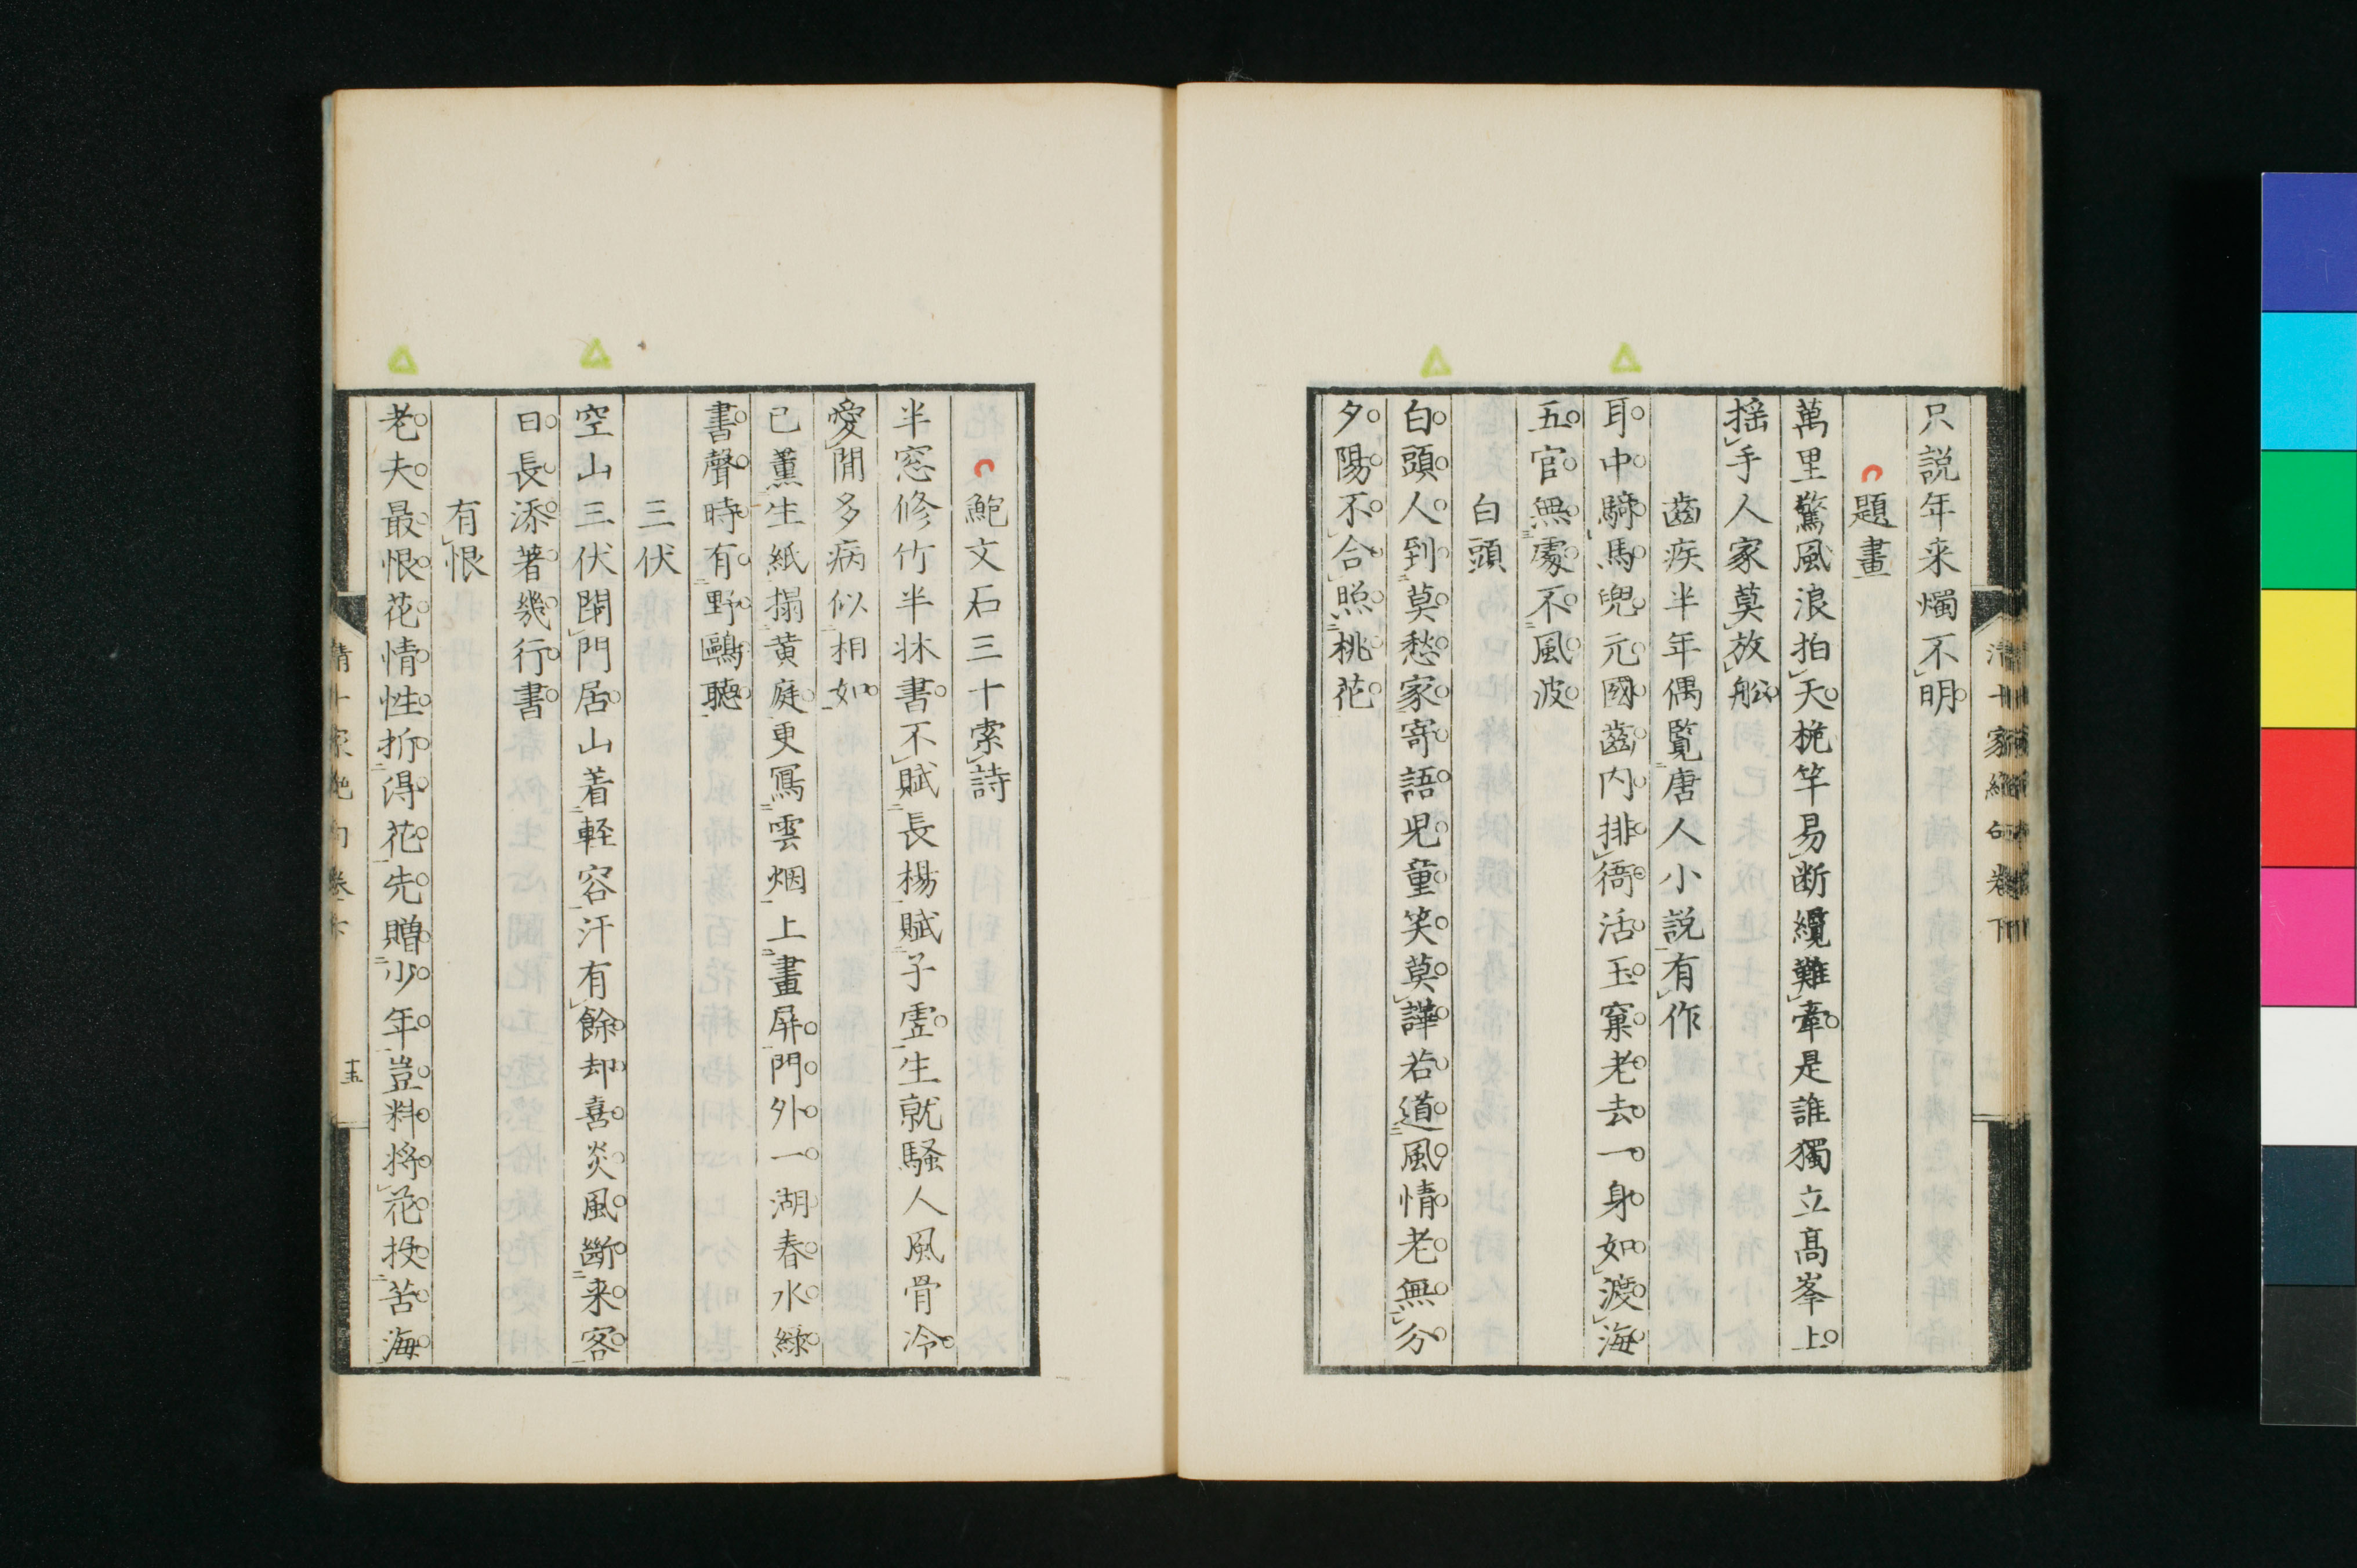 只説年来燭不明
題畫
萬里驚風浪拍天桅竿易断纜難牽是誰獨立髙峯上
揺手人家莫放舩
齒疾半年偶覧唐人小説有作
耳中騎馬兜元國齒内排衙活玉窠老去一身如渡海
五官無處不風波
白頭
白頭人到莫愁家寄語児童笑莫譁若道風情老無分
夕陽不合照桃花
清十家絶句卷下
鮑文石三十索詩
半窓修竹半牀書不賦長楊賦子虚生就騷人風骨冷
愛閒多病似相如
已薫生紙搨黄庭更冩雲烟上畫屏門外一湖春水緑
書聲時有野鷗聴
三伏
空山三伏閉門居山着軽容汗有餘却喜炎風斷来客
日長添著幾行書
有恨
老夫最恨花情性折得花先贈少年豈料将花投苦海
十五